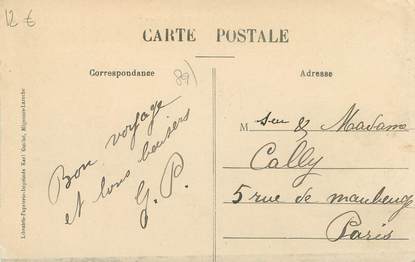 12 €
CARTE POSTALE
Correspondance
89)
Adresse
Bon voyage
et bons baisers
G. P.
M sieu & Madame
Cally
5 rue de maubeuge
Paris
Librairie-Papeterie-Imprimerie Karl Guichet, Migennes-Laroche